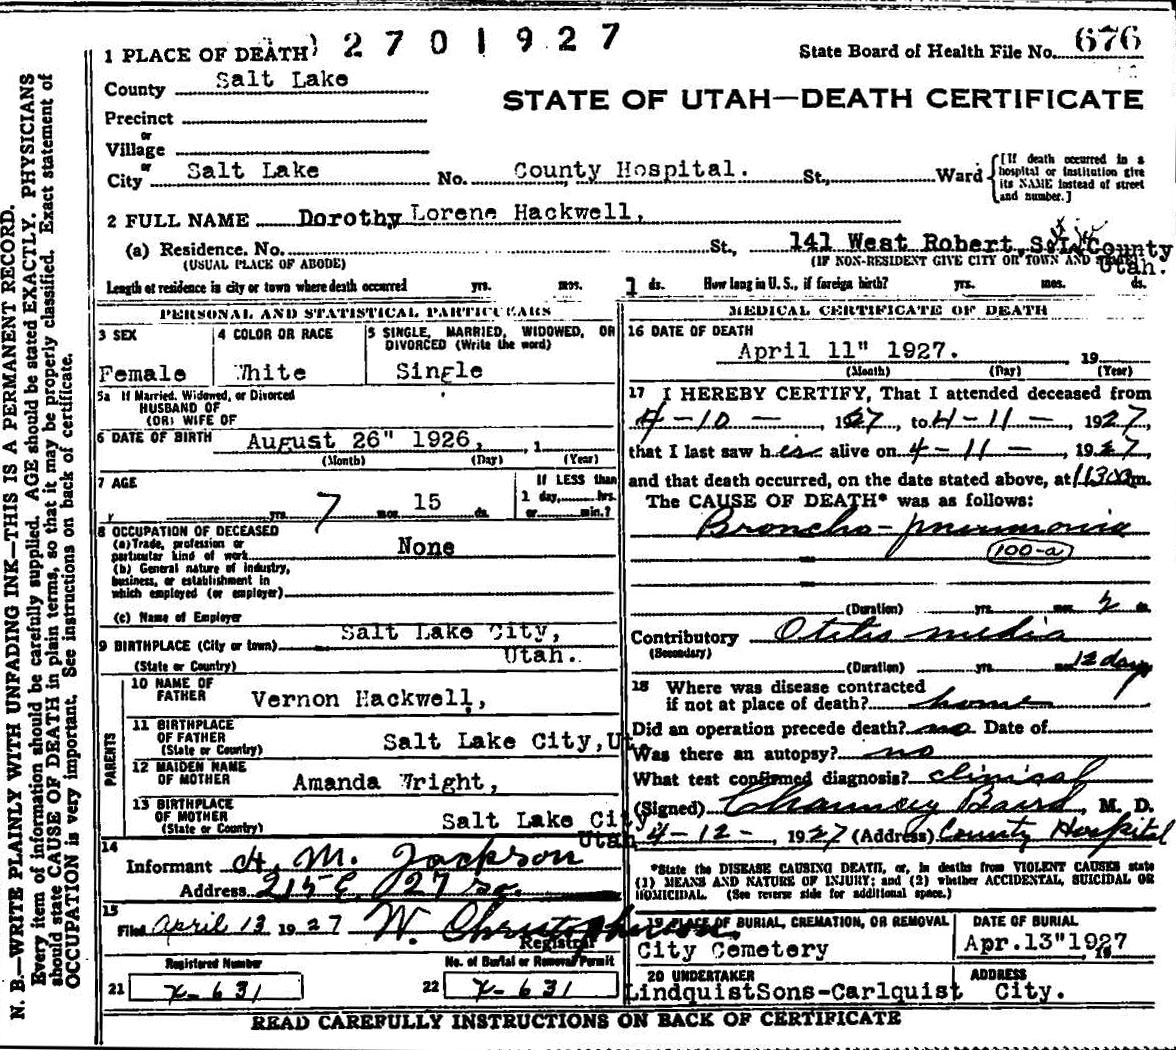 N. B.—WRITE PLAINLY WITH UNFADING INK—THIS IS A PERMANENT RECORD.
Every item of information should be carefully supplied. AGE should be stated EXACTLY. PHYSICIANS
should state CAUSE OF DEATH in plain terms, so that it may be properly classified. Exact statement of
OCCUPATION is very important. See instructions on back of certificate.
1 PLACE OF DEATH) 2 7 0 1 9 2 7
State Board of Health File No. 676
County Salt Lake
STATE OF UTAH—DEATH CERTIFICATE
Precinct
or
Village
or
City Salt Lake No. County Hospital. St., Ward
[If death occurred in a
hospital or institution give
its NAME instead of street
and number.]
2 FULL NAME Dorothy Lorene Hackwell,
(a) Residence. No. St., 141 West Robert, S.L. County
Utah.
(USUAL PLACE OF ABODE) (IF NON-RESIDENT GIVE CITY OR TOWN AND
Length of residence in city or town where death occurred yrs. mos. 1 ds. How long in U. S., if foreign birth? yrs. mos. ds.
PERSONAL AND STATISTICAL PARTICULARS
3 SEX
Female
4 COLOR OR RACE
White
5 SINGLE, MARRIED, WIDOWED, OR
DIVORCED (Write the word)
Single
5a If Married, Widowed, or Divorced
HUSBAND OF
(OR) WIFE OF
6 DATE OF BIRTH August 26" 1926, 1
(Month) (Day) (Year)
7 AGE
yrs. 7 mos. 15 ds.
If LESS than
1 day, hrs.
or min.?
8 OCCUPATION OF DECEASED
(a) Trade, profession or
particular kind of work None
(b) General nature of industry,
business, or establishment in
which employed (or employer)
(c) Name of Employer
9 BIRTHPLACE (City or town) Salt Lake City,
(State or Country) Utah.
PARENTS
10 NAME OF
FATHER Vernon Hackwell,
11 BIRTHPLACE
OF FATHER
(State or Country) Salt Lake City, Ut
12 MAIDEN NAME
OF MOTHER Amanda Wright,
13 BIRTHPLACE
OF MOTHER
(State or Country) Salt Lake City
Utah
14
Informant H. M. Jackson
Address 215 E 27 so.
15
Filed April 13 1927 W. Christopherson.
Registrar
Registered Number
21 X-631
No. of Burial or Removal Permit
22 X-631
MEDICAL CERTIFICATE OF DEATH
16 DATE OF DEATH
April 11" 1927. 19
(Month) (Day) (Year)
17 I HEREBY CERTIFY, That I attended deceased from
4-10-, 1927, to 4-11-, 1927,
that I last saw her alive on 4-11-, 1927,
and that death occurred, on the date stated above, at m.
The CAUSE OF DEATH* was as follows:
Broncho-pneumonia
100-a
(Duration) yrs. mos. 2 ds.
Contributory Otitis media
(Secondary)
(Duration) yrs. mos. 12 days
18 Where was disease contracted
if not at place of death? home
Did an operation precede death? no Date of
Was there an autopsy? no
What test confirmed diagnosis? clinical
(Signed) Chauncey Baird, M. D.
4-12-, 1927 (Address) County Hospital
*State the DISEASE CAUSING DEATH, or, in deaths from VIOLENT CAUSES state
(1) MEANS AND NATURE OF INJURY; and (2) whether ACCIDENTAL, SUICIDAL OR
HOMICIDAL. (See reverse side for additional space.)
19 PLACE OF BURIAL, CREMATION, OR REMOVAL
City Cemetery
DATE OF BURIAL
Apr. 13" 1927
19
20 UNDERTAKER
LindquistSons-Carlquist
ADDRESS
City.
READ CAREFULLY INSTRUCTIONS ON BACK OF CERTIFICATE